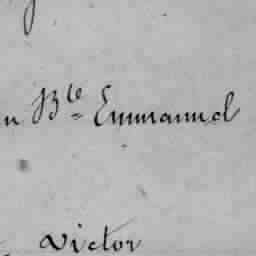 n Bte Emmanuel
Victor